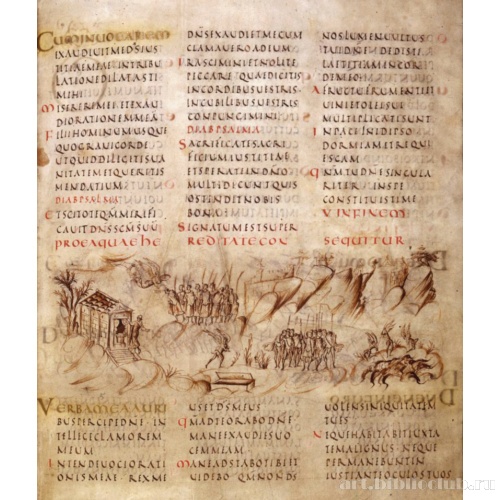 CUMINUOCAREM
EXAUDIUITMEDSIUS
TITIAEMEAE INTRIBU
LATIONEDILATASTI
MIHI
MISEREREMEI ETEXAU
DIORATIONEMMEA
FILII HOMINUM USQUE
QUOGRAUICORDE
UTQUIDDILIGITISUA
NITATEM ETQUERITIS
MENDATIUM
DIABPSALMA
ETSCITOTEQMMIRIFI
CAUITDNSSCMSUU
DNSEXAUDIETMECUM
CLAMAUEROADEUM
IRASCIMINI ETNOLITE
PECCARE QUAEDICITIS
INCORDIBUSUESTRIS
INCUBILIBUSUESTRIS
CONPUNGIMINI
DIABPSALMA
SACRIFICATESACRI
FICIUMIUSTITIAE
ETSPERATEINDNO
MULTIDICUNTQUIS
OSTENDITNOBIS
BONA
SIGNATUMESTSUPER
NOSLUMENUULTUS
TUIDNE DEDISTI
LAETITIAMINCOR
DEMEO
AFRUCTUFRUMENTI ET
UINIETOLEISUI
MULTIPLICATISUNT
INPACEINIDIPSO
DORMIAMETREQUI
ESCAM
QMTUDNESINGULA
RITER INSPE
CONSTITUISTIME
V INFINEM
PROEAQUAEHE REDITATECON SEQUITUR
VERBAMEAAURI
BUSPERCIPEDNE IN
TELLEGECLAMOREM
MEUM
INTENDEUOCIORATI
ONISMEAE REXME
USETDSMEUS
QMADTEORABODNE
MANEEXAUDIESUO
CEMMEAM
MANEADSTABOTIBIET
UIDEBO QMNONDS
UOLENSINIQUITATEM
TUES
NEQUEHABITABITIUXTA
TEMALIGNUS NEQUE
PERMANEBUNTIN
IUSTIANTEOCULOSTUOS
art.biblioclub.ru